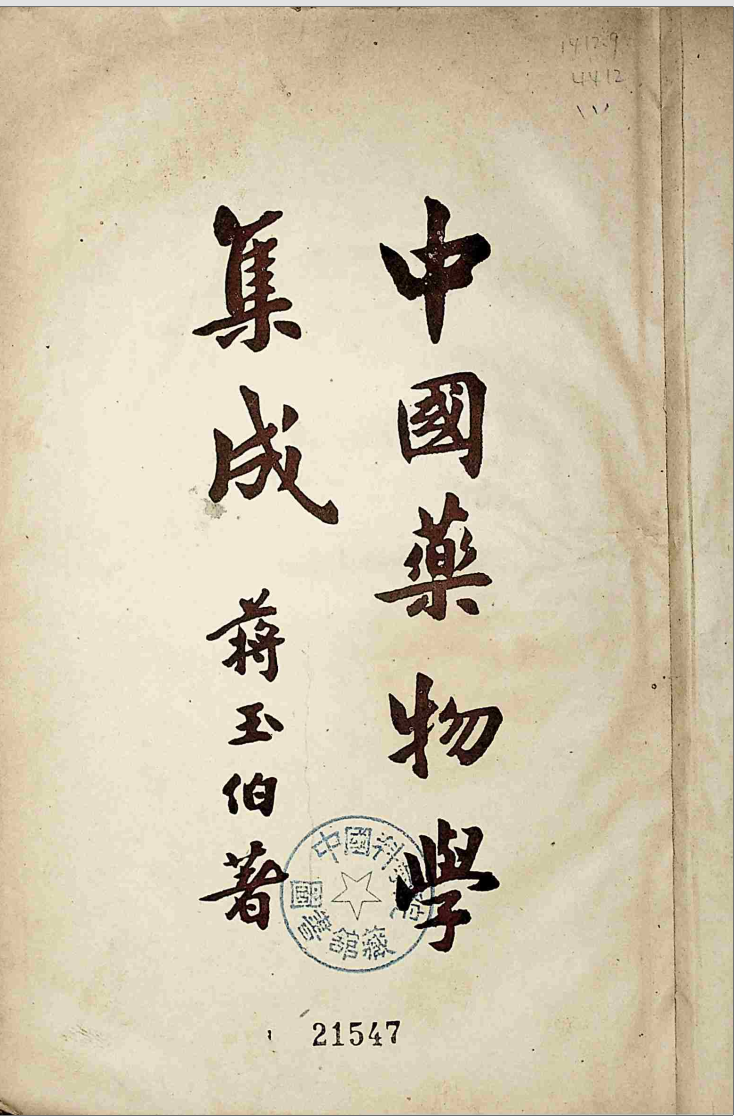 1412.9
4412
中國藥物學
集成
蔣玉伯著
中國科學院圖書館藏
21547